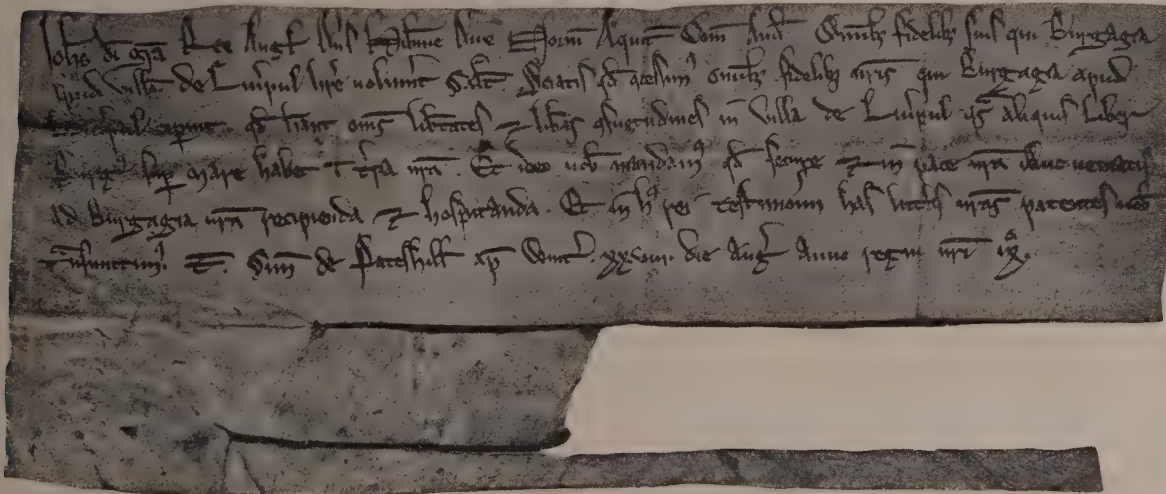 Joh̃s di grã Rex Angł Dñs Hib̃nie Dux Norm̃ Aquit̃ Com̃ And̃ Omnib; fidelib; suis qui Burgagia
apud villã de Liu̾pul h̾re voluerint Sał̃t Sciatis qđ ↄcessim⁹ omnib; fidelib; nr̃is qui Burgagia apud
Liu̾pul cep̾int qđ h̾ant om̃s lib̾tates ⁊ lib̾as ↄsuetudines in villa de Liu̾pul qͣs aliquis liber
Burg⁹ sup̱ mare habet ĩ t̾ra nr̃a . Et ideo vob̾ mandam⁹ qđ secure ⁊ in pace nr̃a illuc veniatis
ad Burgagia nr̃a recipienda ⁊ hospitanda . Et in h⁹ rei Testimoniũ has litt̾as nr̃as patentes vob̾
t̃nsmittim⁹ . T̃ . Sim̃ de Pateshill ap̃ Wint̾ . xxviii die Aug̾ Anno regni nr̃i ixº .